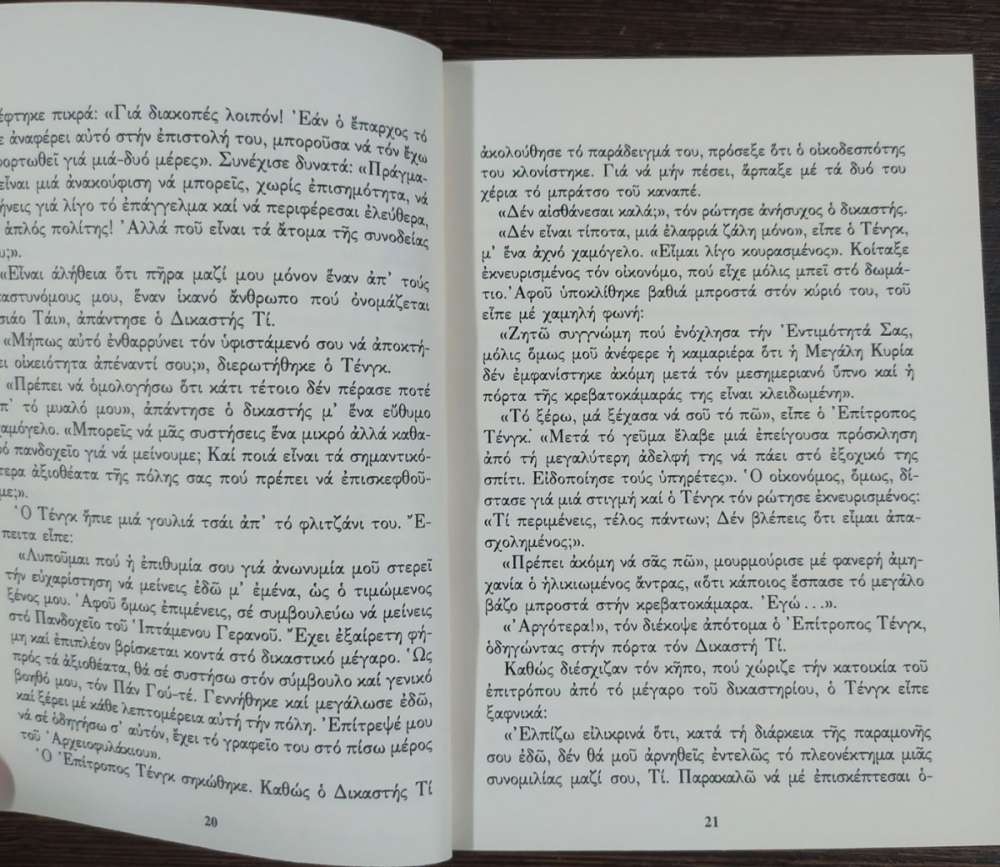 έφτηκε πικρά: «Γιά διακοπές λοιπόν! Ἐάν ὁ ἔπαρχος τό
ε ἀναφέρει αὐτό στήν ἐπιστολή του, μποροῦσα νά τόν ἔχω
ορτωθεῖ γιά μιά-δυό μέρες». Συνέχισε δυνατά: «Πράγμα-
εἶναι μιά ἀνακούφιση νά μπορεῖς, χωρίς ἐπισημότητα, νά
ήνεις γιά λίγο τό ἐπάγγελμα καί νά περιφέρεσαι ἐλεύθερα,
ἁπλός πολίτης! Ἀλλά ποῦ εἶναι τά ἄτομα τῆς συνοδείας
υ;».
«Εἶναι ἀλήθεια ὅτι πῆρα μαζί μου μόνον ἕναν ἀπ' τούς
αστυνόμους μου, ἕναν ἱκανό ἄνθρωπο πού ὀνομάζεται
σιάο Τάι», ἀπάντησε ὁ Δικαστής Τί.
«Μήπως αὐτό ἐνθαρρύνει τόν ὑφιστάμενό σου νά ἀποκτή-
ει οἰκειότητα ἀπέναντί σου;», διερωτήθηκε ὁ Τένγκ.
«Πρέπει νά ὁμολογήσω ὅτι κάτι τέτοιο δέν πέρασε ποτέ
π' τό μυαλό μου», ἀπάντησε ὁ δικαστής μ' ἕνα εὔθυμο
αμόγελο. «Μπορεῖς νά μᾶς συστήσεις ἕνα μικρό ἀλλά καθα-
ό πανδοχεῖο γιά νά μείνουμε; Καί ποιά εἶναι τά σημαντικό-
τερα ἀξιοθέατα τῆς πόλης σας πού πρέπει νά ἐπισκεφθοῦ-
με;».
Ὁ Τένγκ ἤπιε μιά γουλιά τσάι ἀπ' τό φλιτζάνι του. Ἔ-
πειτα εἶπε:
«Λυποῦμαι πού ἡ ἐπιθυμία σου γιά ἀνωνυμία μοῦ στερεῖ
τήν εὐχαρίστηση νά μείνεις ἐδῶ μ' ἐμένα, ὡς ὁ τιμώμενος
ξένος μου. Ἀφοῦ ὅμως ἐπιμένεις, σέ συμβουλεύω νά μείνεις
στό Πανδοχεῖο τοῦ Ἱπτάμενου Γερανοῦ. Ἔχει ἐξαίρετη φή-
μη καί ἐπιπλέον βρίσκεται κοντά στό δικαστικό μέγαρο. Ὡς
πρός τά ἀξιοθέατα, θά σέ συστήσω στόν σύμβουλο καί γενικό
βοηθό μου, τόν Πάν Γού-τέ. Γεννήθηκε καί μεγάλωσε ἐδῶ,
καί ξέρει μέ κάθε λεπτομέρεια αὐτή τήν πόλη. Ἐπίτρεψέ μου
νά σέ ὁδηγήσω σ' αὐτόν, ἔχει τό γραφεῖο του στό πίσω μέρος
τοῦ Ἀρχειοφυλάκιου».
Ὁ Ἐπίτροπος Τένγκ σηκώθηκε. Καθώς ὁ Δικαστής Τί
20
ἀκολούθησε τό παράδειγμά του, πρόσεξε ὅτι ὁ οἰκοδεσπότης
του κλονίστηκε. Γιά νά μήν πέσει, ἅρπαξε μέ τά δυό του
χέρια τό μπράτσο τοῦ καναπέ.
«Δέν αἰσθάνεσαι καλά;», τόν ρώτησε ἀνήσυχος ὁ δικαστής.
«Δέν εἶναι τίποτα, μιά ἐλαφριά ζάλη μόνο», εἶπε ὁ Τένγκ,
μ' ἕνα ἀχνό χαμόγελο. «Εἶμαι λίγο κουρασμένος». Κοίταξε
ἐκνευρισμένος τόν οἰκονόμο, πού εἶχε μόλις μπεῖ στό δωμά-
τιο. Ἀφοῦ ὑποκλίθηκε βαθιά μπροστά στόν κύριό του, τοῦ
εἶπε μέ χαμηλή φωνή:
«Ζητῶ συγγνώμη πού ἐνόχλησα τήν Ἐντιμότητά Σας,
μόλις ὅμως μοῦ ἀνέφερε ἡ καμαριέρα ὅτι ἡ Μεγάλη Κυρία
δέν ἐμφανίστηκε ἀκόμη μετά τόν μεσημεριανό ὕπνο καί ἡ
πόρτα τῆς κρεβατοκάμαράς της εἶναι κλειδωμένη».
«Τό ξέρω, μά ξέχασα νά σοῦ τό πῶ», εἶπε ὁ Ἐπίτροπος
Τένγκ. «Μετά τό γεῦμα ἔλαβε μιά ἐπείγουσα πρόσκληση
ἀπό τή μεγαλύτερη ἀδελφή της νά πάει στό ἐξοχικό της
σπίτι. Εἰδοποίησε τούς ὑπηρέτες». Ὁ οἰκονόμος, ὅμως, δί-
στασε γιά μιά στιγμή καί ὁ Τένγκ τόν ρώτησε ἐκνευρισμένος:
«Τί περιμένεις, τέλος πάντων; Δέν βλέπεις ὅτι εἶμαι ἀπα-
σχολημένος;».
«Πρέπει ἀκόμη νά σᾶς πῶ», μουρμούρισε μέ φανερή ἀμη-
χανία ὁ ἡλικιωμένος ἄντρας, «ὅτι κάποιος ἔσπασε τό μεγάλο
βάζο μπροστά στήν κρεβατοκάμαρα. Ἐγώ...».
«Ἀργότερα!», τόν διέκοψε ἀπότομα ὁ Ἐπίτροπος Τένγκ,
ὁδηγώντας στήν πόρτα τόν Δικαστή Τί.
Καθώς διέσχιζαν τόν κῆπο, πού χώριζε τήν κατοικία τοῦ
ἐπιτρόπου ἀπό τό μέγαρο τοῦ δικαστηρίου, ὁ Τένγκ εἶπε
ξαφνικά:
«Ἐλπίζω εἰλικρινά ὅτι, κατά τή διάρκεια τῆς παραμονῆς
σου ἐδῶ, δέν θά μοῦ ἀρνηθεῖς ἐντελῶς τό πλεονέκτημα μιᾶς
συνομιλίας μαζί σου, Τί. Παρακαλῶ νά μέ ἐπισκέπτεσαι ὁ-
21